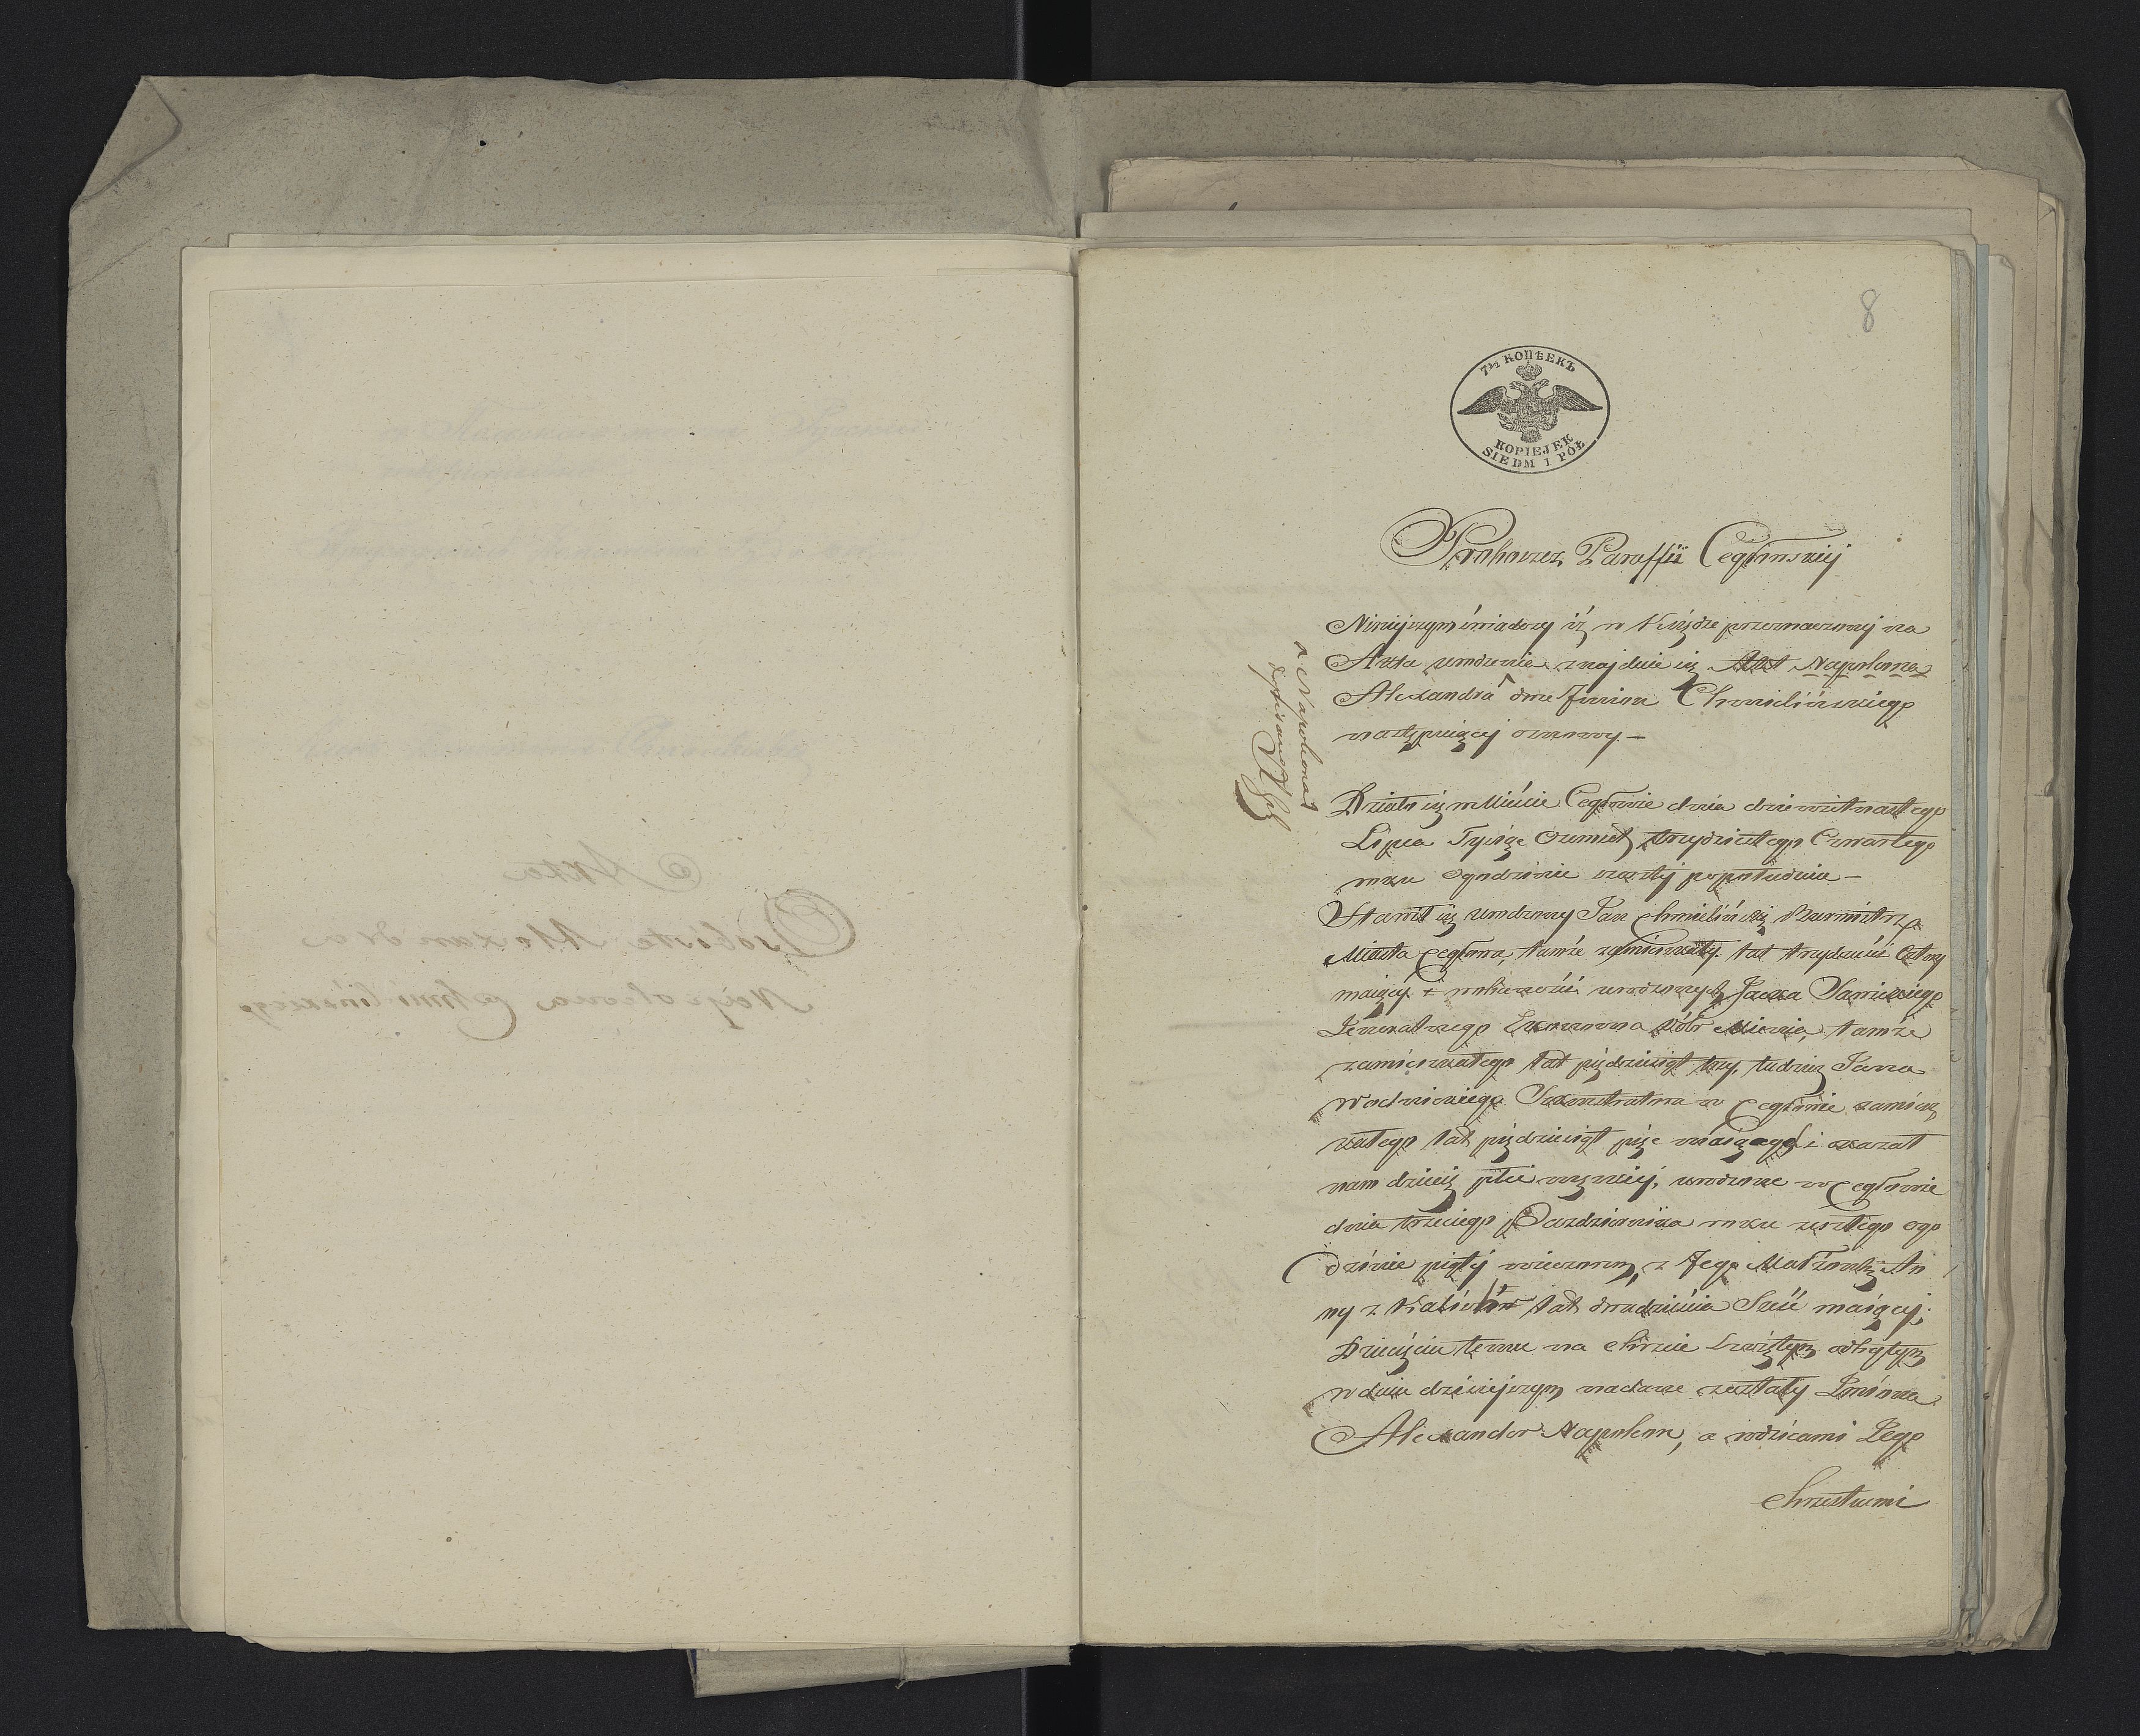 8
7½ КОПѢЕКЪ
KOPIEJEK
SIEDM I PÓŁ
Proboszcz Paraffii Cegłowskiej
Niniejszym świadczy iż w Księdze przeznaczonej na
Akta urodzenia znajduie się Akt Napoleona
Alexandra dwu Imion Chmielińskiego
następuiącey osnowy –
a Napoleona
dopisano
Działo się w Mieście Cegłowie dnia dziewiętnastego
Lipca Tysiąc Ośmset trzydziestego Czwartego
roku o godzinie szostej popołudniu –
Stawił się urodzony Jan Chmieliński Burmistrz
Miasta Cegłowa tamże zamieszkały lat trzydzieści cztery
maiący w obecności urodzonych Jacka Sawickiego
Jeneralnego Ekonoma Dóbr Mienia, tamże
zamieszkałego lat pięćdziesiąt trzy, tudzież Jana
Wodzickiego Sekwestratora w Cegłowie zamiesz
kałego lat pięćdziesiąt pięć maiącego i okazał
nam dziecię płci męzkiej, urodzone w Cegłowie
dnia trzeciego Pazdziernika roku zeszłego o go
dzinie piątej wieczorem, z Jego Małżonki An
ny z lat dwadzieścia Sześć maiącej.
Dziecięciu temu na chrzcie Świętym odbytym
w dniu dzisiejszym nadane zostały Imiona
Alexander Napoleon, a rodzicami Jego
chrzestnemi
Akta
Osobiste Alexandra
Napoleona Chmielińskiego